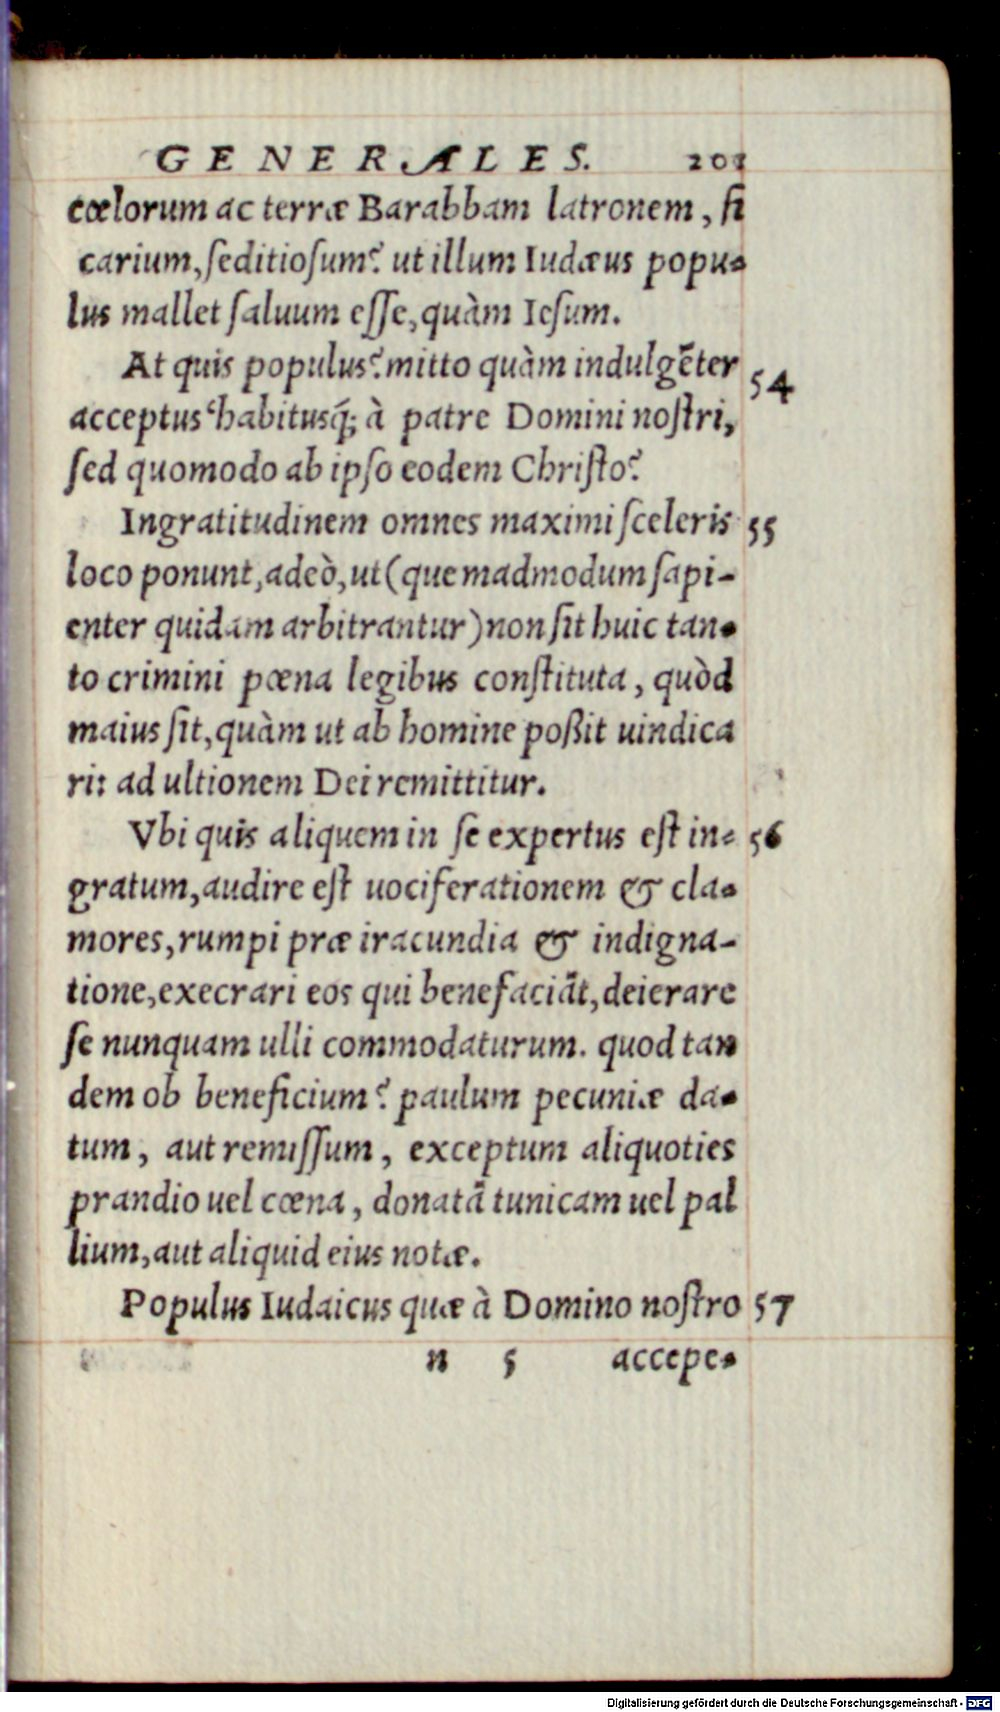 GENERALES. 201
cœlorum ac terræ Barabbam latronem, ſi
carium, ſeditioſum? ut illum Iudæus popu-
lus mallet ſaluum eſſe, quàm Ieſum.
At quis populus? mitto quàm indulgẽter 54
acceptus habitusq́; à patre Domini noſtri,
ſed quomodo ab ipſo eodem Chriſto?
Ingratitudinem omnes maximi ſceleris 55
loco ponunt, adeò, ut (quemadmodum ſapi-
enter quidam arbitrantur) non ſit huic tan-
to crimini pœna legibus conſtituta, quòd
maius ſit, quàm ut ab homine poßit uindica
ri: ad ultionem Dei remittitur.
Vbi quis aliquem in ſe expertus eſt in- 56
gratum, audire eſt uociferationem & cla-
mores, rumpi præ iracundia & indigna-
tione, execrari eos qui benefaciãt, deierare
ſe nunquam ulli commodaturum. quod tan
dem ob beneficium? paulum pecuniæ da-
tum, aut remiſſum, exceptum aliquoties
prandio uel cœna, donatã tunicam uel pal
lium, aut aliquid eius notæ.
Populus Iudaicus quæ à Domino noſtro 57
n 5 accepe-
Digitalisierung gefördert durch die Deutsche Forschungsgemeinschaft - DFG